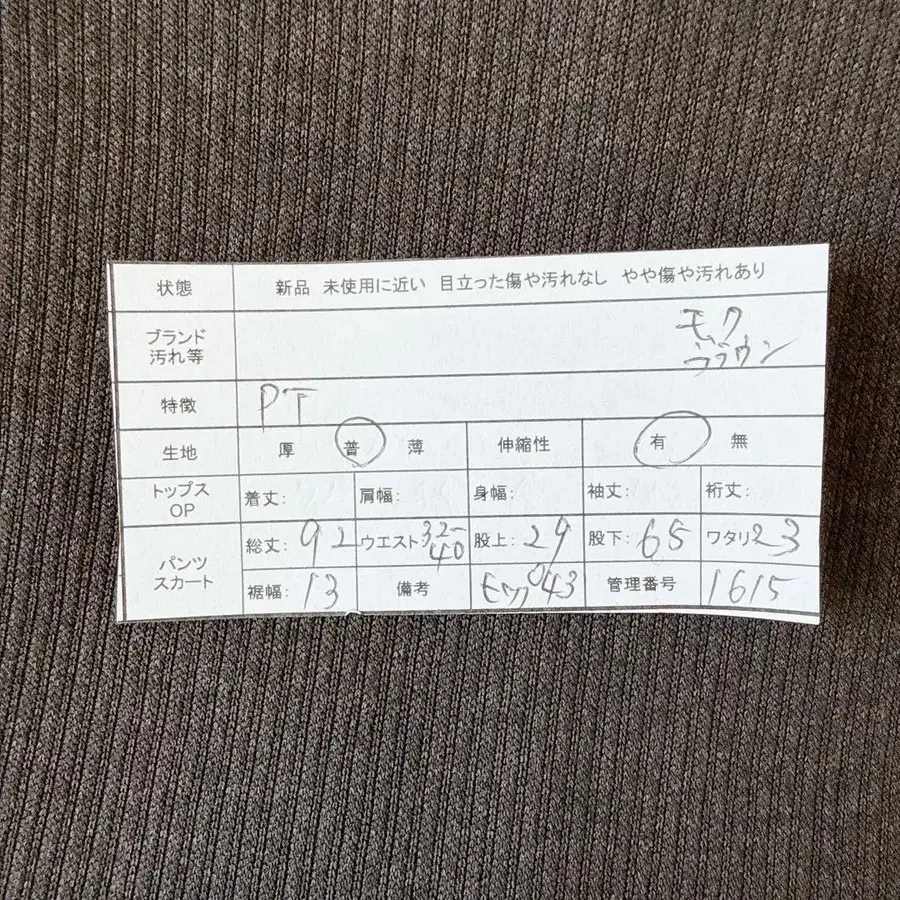 状態 新品 未使用に近い 目立った傷や汚れなし やや傷や汚れあり
ブランド 汚れ等 モク
ブラウン
特徴 PT
生地 厚 普 薄 伸縮性 有 無
トップス OP 着丈: 肩幅: 身幅: 袖丈: 裄丈:
パンツ スカート 総丈: 92 ウエスト: 32-40 股上: 29 股下: 65 ワタリ: 23
裾幅: 13 備考 ヒップ 43 管理番号 1615